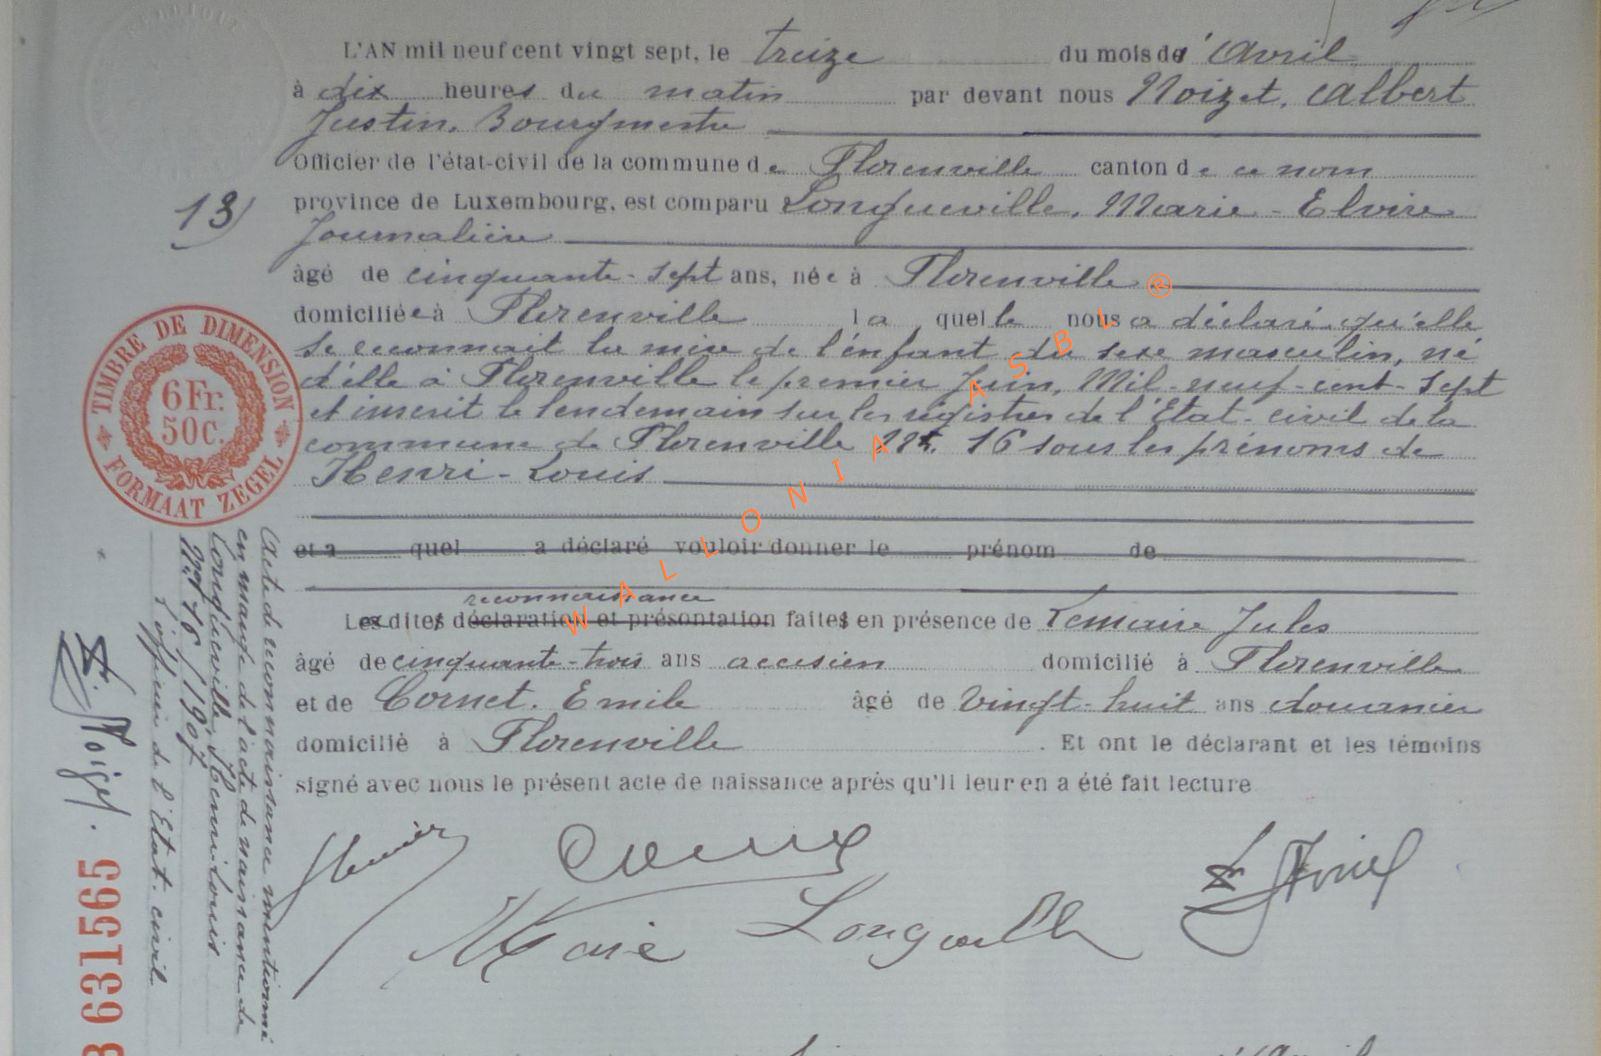 L'AN mil neuf cent vingt sept, le treize du mois d'avril
à dix heures du matin par devant nous Noizet, Albert
Justin, Bourgmestre
Officier de l'état-civil de la commune de Florenville canton de ce nom
province de Luxembourg, est comparu Longueville, Marie-Elvire
Journalière
13/
âgé de cinquante-sept ans, née à Florenville
domiciliée à Florenville laquelle nous a déclaré qu'elle
se reconnait la mère de l'enfant du sexe masculin, né
d'elle à Florenville le premier Juin, Mil-neuf-cent-sept
et inscrit le lendemain sur les registres de l'Etat-civil de la
commune de Florenville N° 16 sous les prénoms de
Henri-Louis
et a quel a déclaré vouloir donner le prénom de
reconnaissance
Les dites déclaration et présentation faites en présence de Lemaire Jules
âgé de cinquante-trois ans accisien domicilié à Florenville
et de Cornet, Emile âgé de vingt-huit ans douanier
domicilié à Florenville. Et ont le déclarant et les témoins
signé avec nous le présent acte de naissance après qu'il leur en a été fait lecture
Marie Longueville
TIMBRE DE DIMENSION
6 Fr.
50 C.
FORMAAT ZEGEL
Acte de reconnaissance mentionné
en marge de l'acte de naissance de
Longueville, Henri-Louis
N° 16/1907
L'officier de l'Etat-civil
A. Noizet.
B 631565
WALLONIA ASBL ®